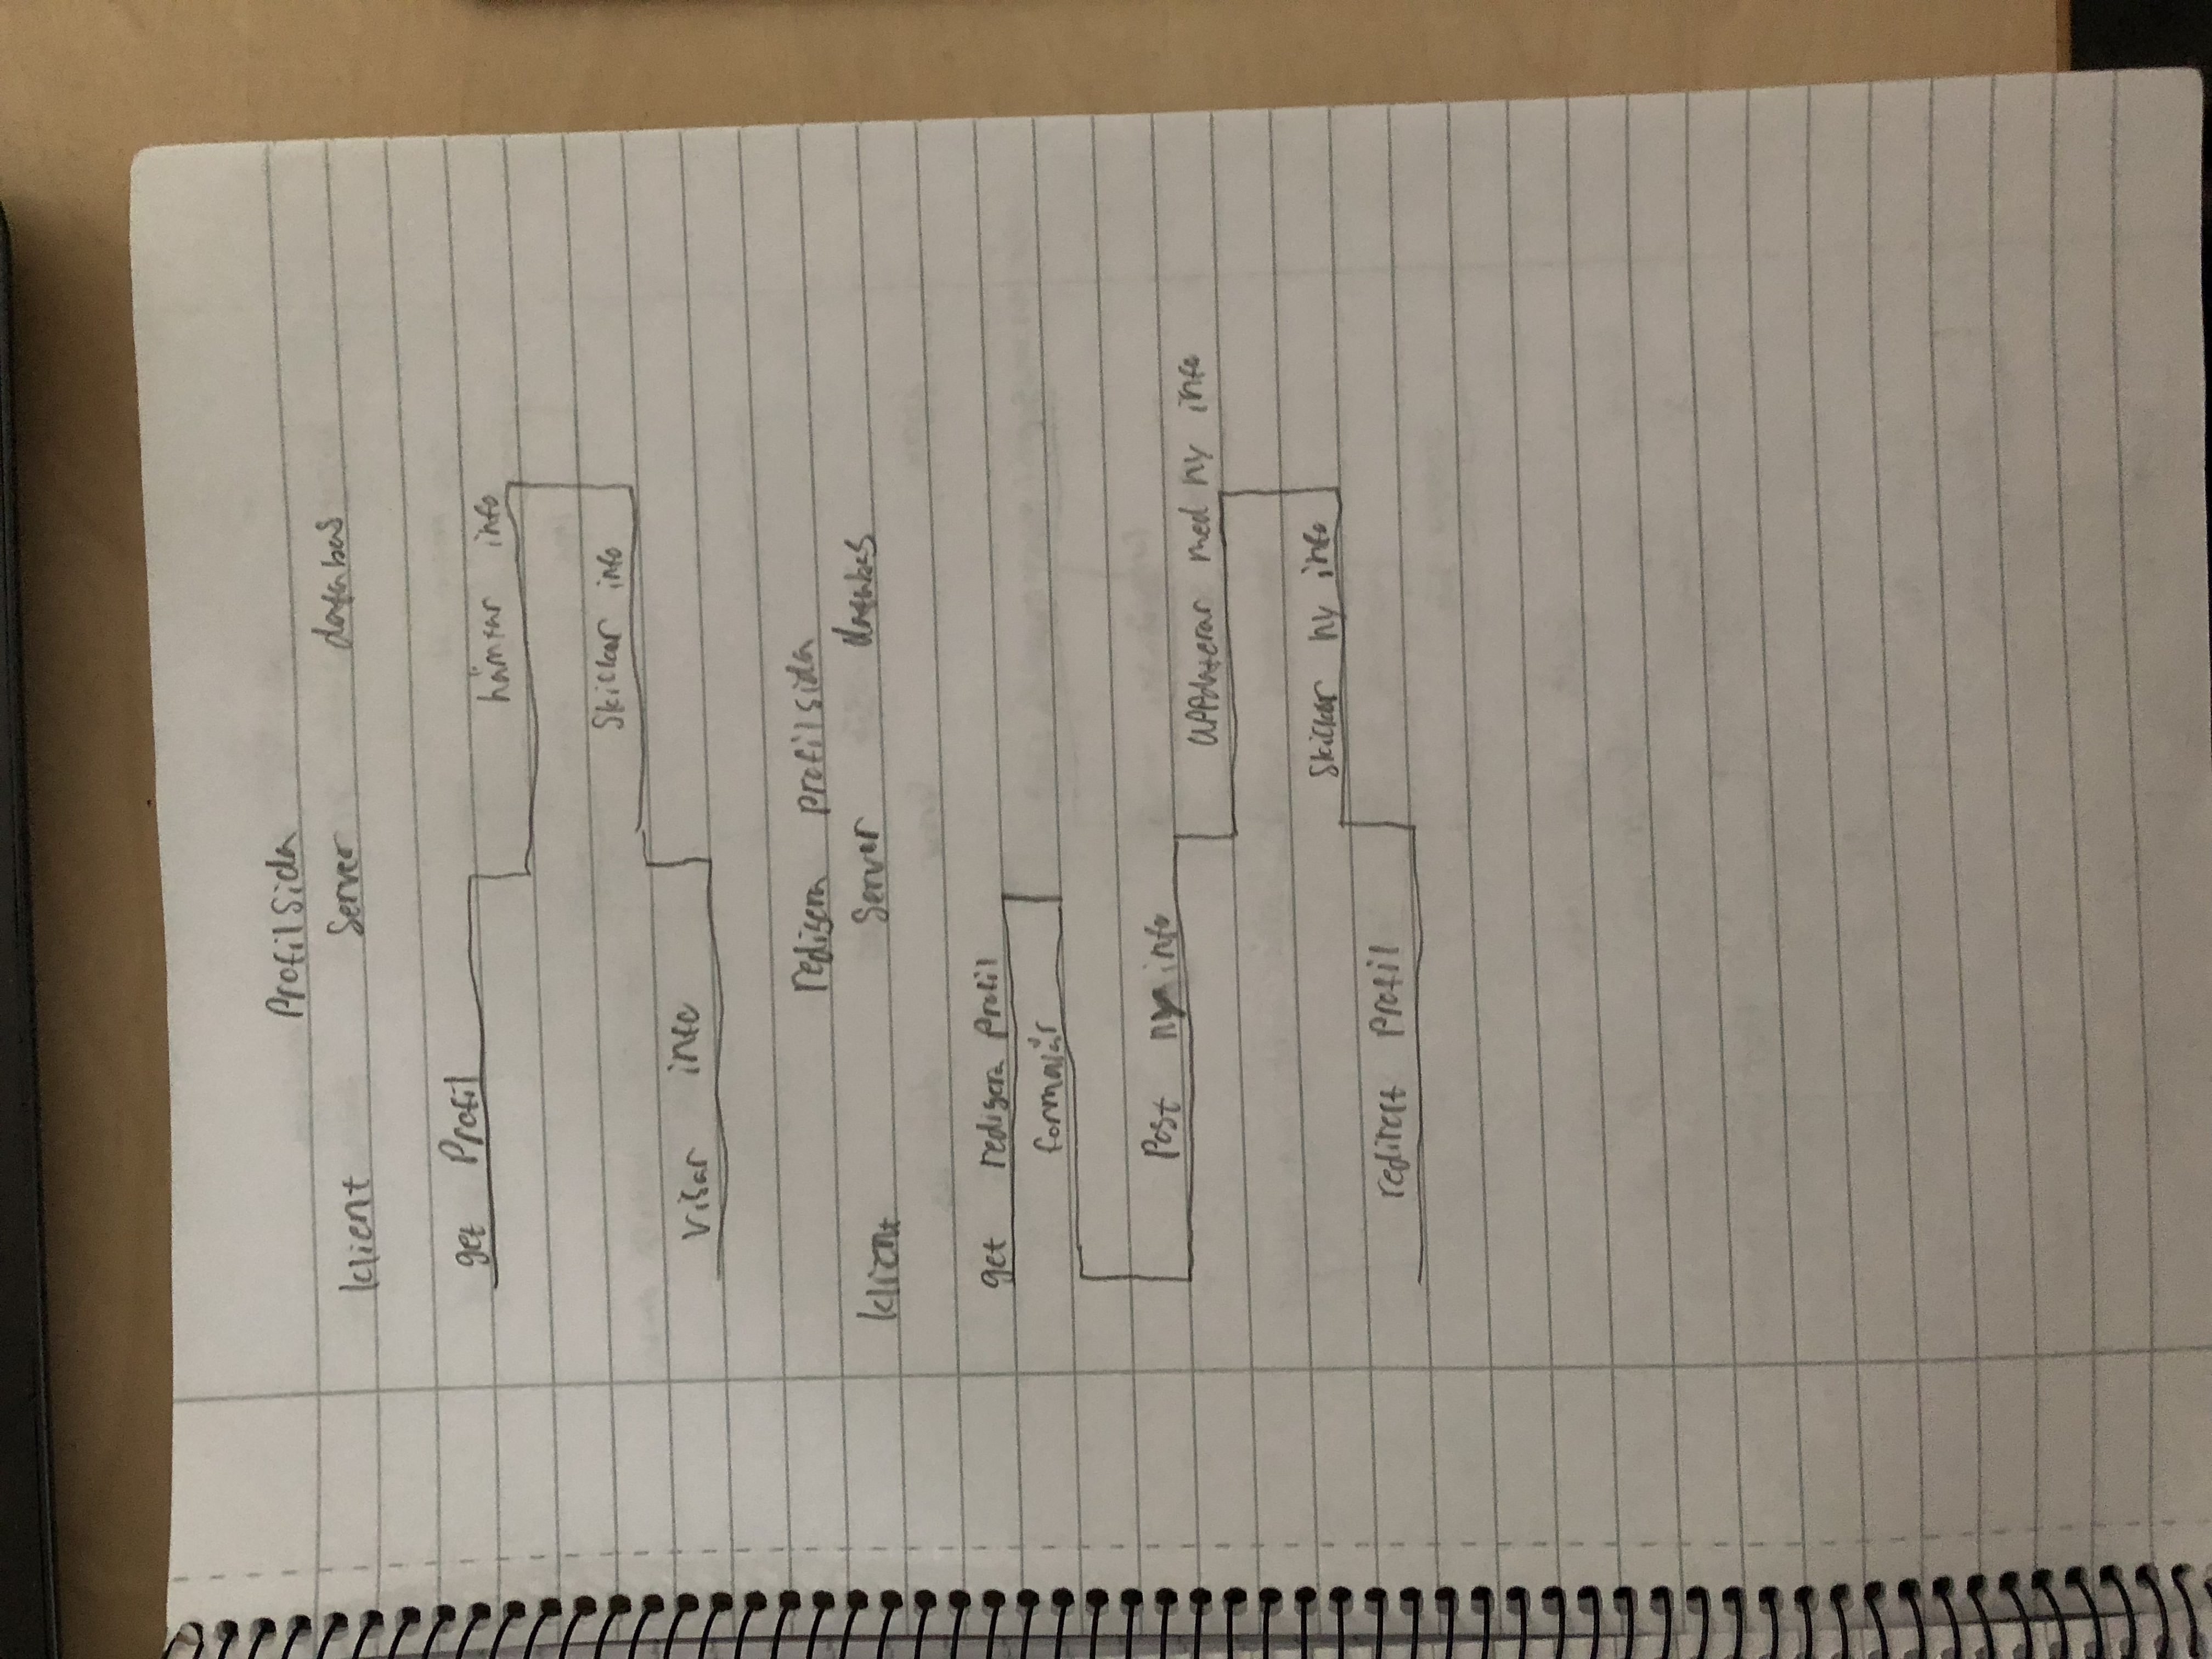 Profilsida
klient server databas
get Profil
hämtar info
Skickar info
Visar info
redigera profilsida
klient Server databas
get redigera profil
formulär
Post ny info
uppdaterar med ny info
Skickar ny info
redirect Profil